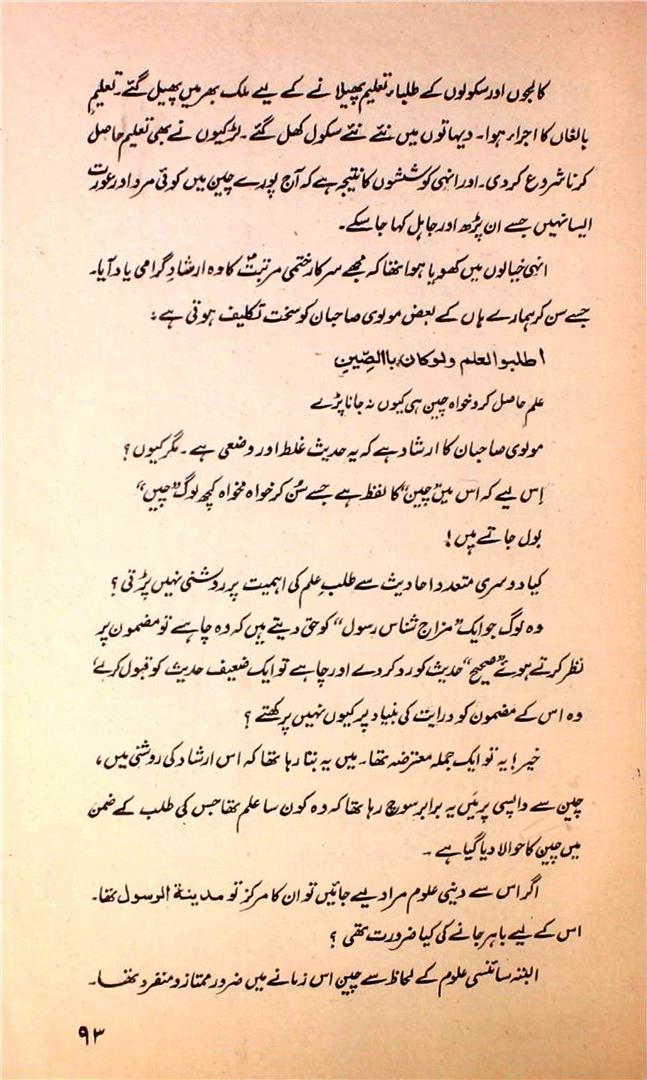 کالجوں اور سکولوں کے طلباء تعلیم پھیلانے کے لیے ملک بھر میں پھیل گئے۔ تعلیمِ
بالغاں کا اجراء ہوا۔ دیہاتوں میں نئے نئے سکول کھل گئے۔ لڑکیوں نے بھی تعلیم حاصل
کرنا شروع کردی۔ اور انہی کوششوں کا نتیجہ ہے کہ آج پورے چین میں کوئی مرد اور عورت
ایسا نہیں جسے ان پڑھ اور جاہل کہا جاسکے۔
انہی خیالوں میں کھویا ہوا تھا کہ مجھے سرکار ختمی مرتبتؐ کا وہ ارشادِ گرامی یاد آیا۔
جسے سن کر ہمارے ہاں کے بعض مولوی صاحبان کو سخت تکلیف ہوتی ہے:
اطلبوا العلم ولوکان باالصِّینِ
علم حاصل کرو خواہ چین ہی کیوں نہ جانا پڑے
مولوی صاحبان کا ارشاد ہے کہ یہ حدیث غلط اور وضعی ہے۔ مگر کیوں؟
اِس لیے کہ اس میں "چین" کا لفظ ہے جسے سُن کر خواہ مخواہ کچھ لوگ "چیں"
بول جاتے ہیں!
کیا دوسری متعدد احادیث سے طلبِ علم کی اہمیت پر روشنی نہیں پڑتی؟
وہ لوگ جو ایک "مزاج شناس رسول" کو حق دیتے ہیں کہ وہ چاہے تو مضمون پر
نظر کرتے ہوئے "صحیح" حدیث کو رد کردے اور چاہے تو ایک ضعیف حدیث کو قبول کرلے
وہ اس کے مضمون کو درایت کی بنیاد پر کیوں نہیں پرکھتے؟
خیر! یہ تو ایک جملہ معترضہ تھا۔ میں یہ بتا رہا تھا کہ اس ارشاد کی روشنی میں،
چین سے واپسی پر میَں یہ برابر سوچ رہا تھا کہ وہ کون سا علم تھا جس کی طلب کے ضمن
میں چین کا حوالا دیا گیا ہے۔
اگر اس سے دینی علوم مراد لیے جائیں تو ان کا مرکز تو مدینة الرسول تھا۔
اس کے لیے باہر جانے کی کیا ضرورت تھی؟
البتہ سائنسی علوم کے لحاظ سے چین اس زمانے میں ضرور ممتاز و منفرد تھا۔
۹۳